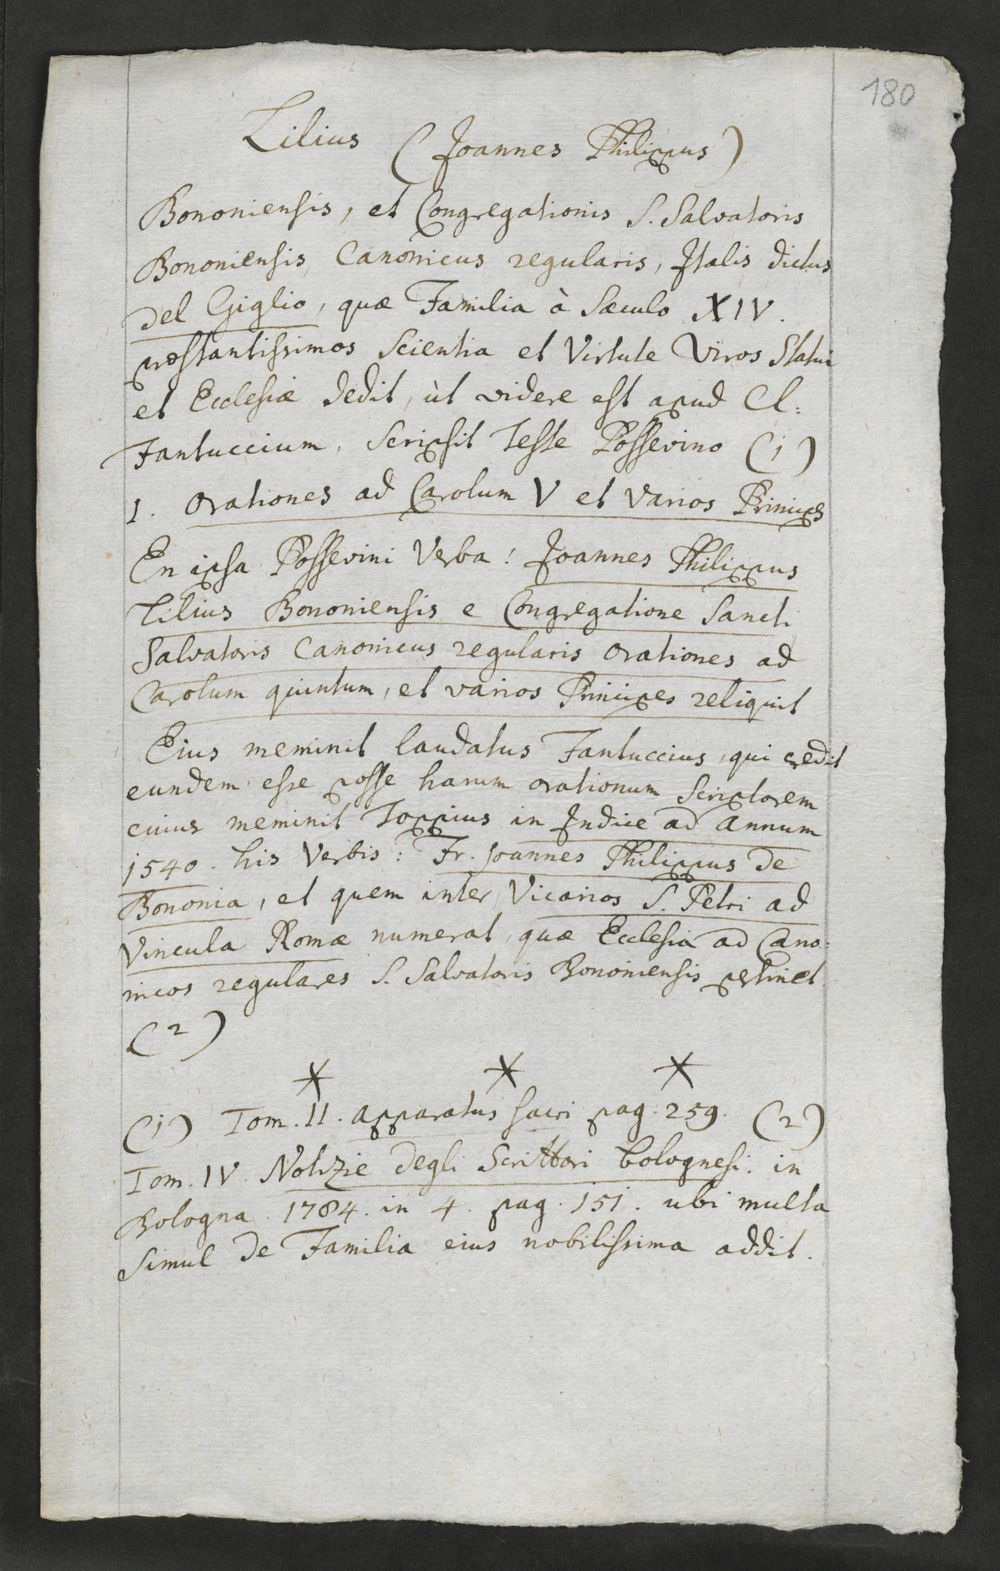 180
Lilius (Joannes Philippus)
Bononiensis, et Congregationis S. Salvatoris
Bononiensis Canonicus regularis, Italis dictus
del Giglio, quæ Familia à Sæculo XIV.
præstantissimos Scientia et Virtute Viros Statui
et Ecclesiæ dedit, ùt videre est apud Cl:
Fantuccium. Scripsit teste Possevino (1)
1. Orationes ad Carolum V et varios Principes
En ipsa Possevini Verba: Joannes Philippus
Lilius Bononiensis e Congregatione Sancti
Salvatoris Canonicus regularis Orationes ad
Carolum quintum, et varios Principes reliquit
Eius meminit laudatus Fantuccius, qui credit
eundem esse posse harum orationum Scriptorem
cuius meminit Toppius in Indice ad Annum
1540. his Verbis: Fr. Joannes Philippus de
Bononia, et quem inter Vicarios S. Petri ad
Vincula Romæ numerat, quæ Ecclesia ad Cano:
nicos regulares S. Salvatoris Bononiensis pertinet
(2)
* * *
(1) Tom. II. Apparatus sacri pag. 259. (2)
Tom. IV. Notizie degli Scrittori bolognesi. in
Bologna. 1784. in 4. pag. 151. ubi multa
simul de Familia eius nobilissima addit.